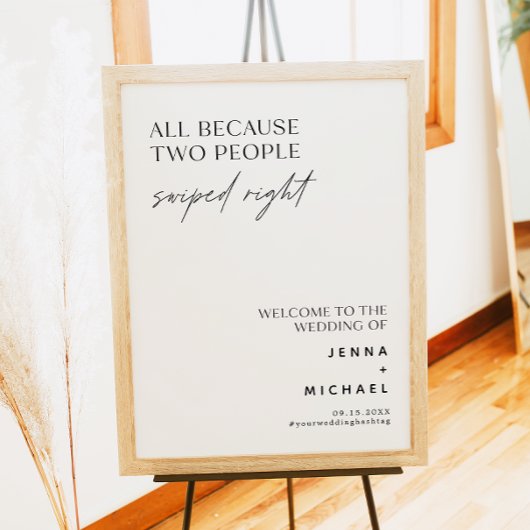 ALL BECAUSE
TWO PEOPLE
swiped right
WELCOME TO THE
WEDDING OF
JENNA
+
MICHAEL
09.15.20XX
#yourweddinghashtag